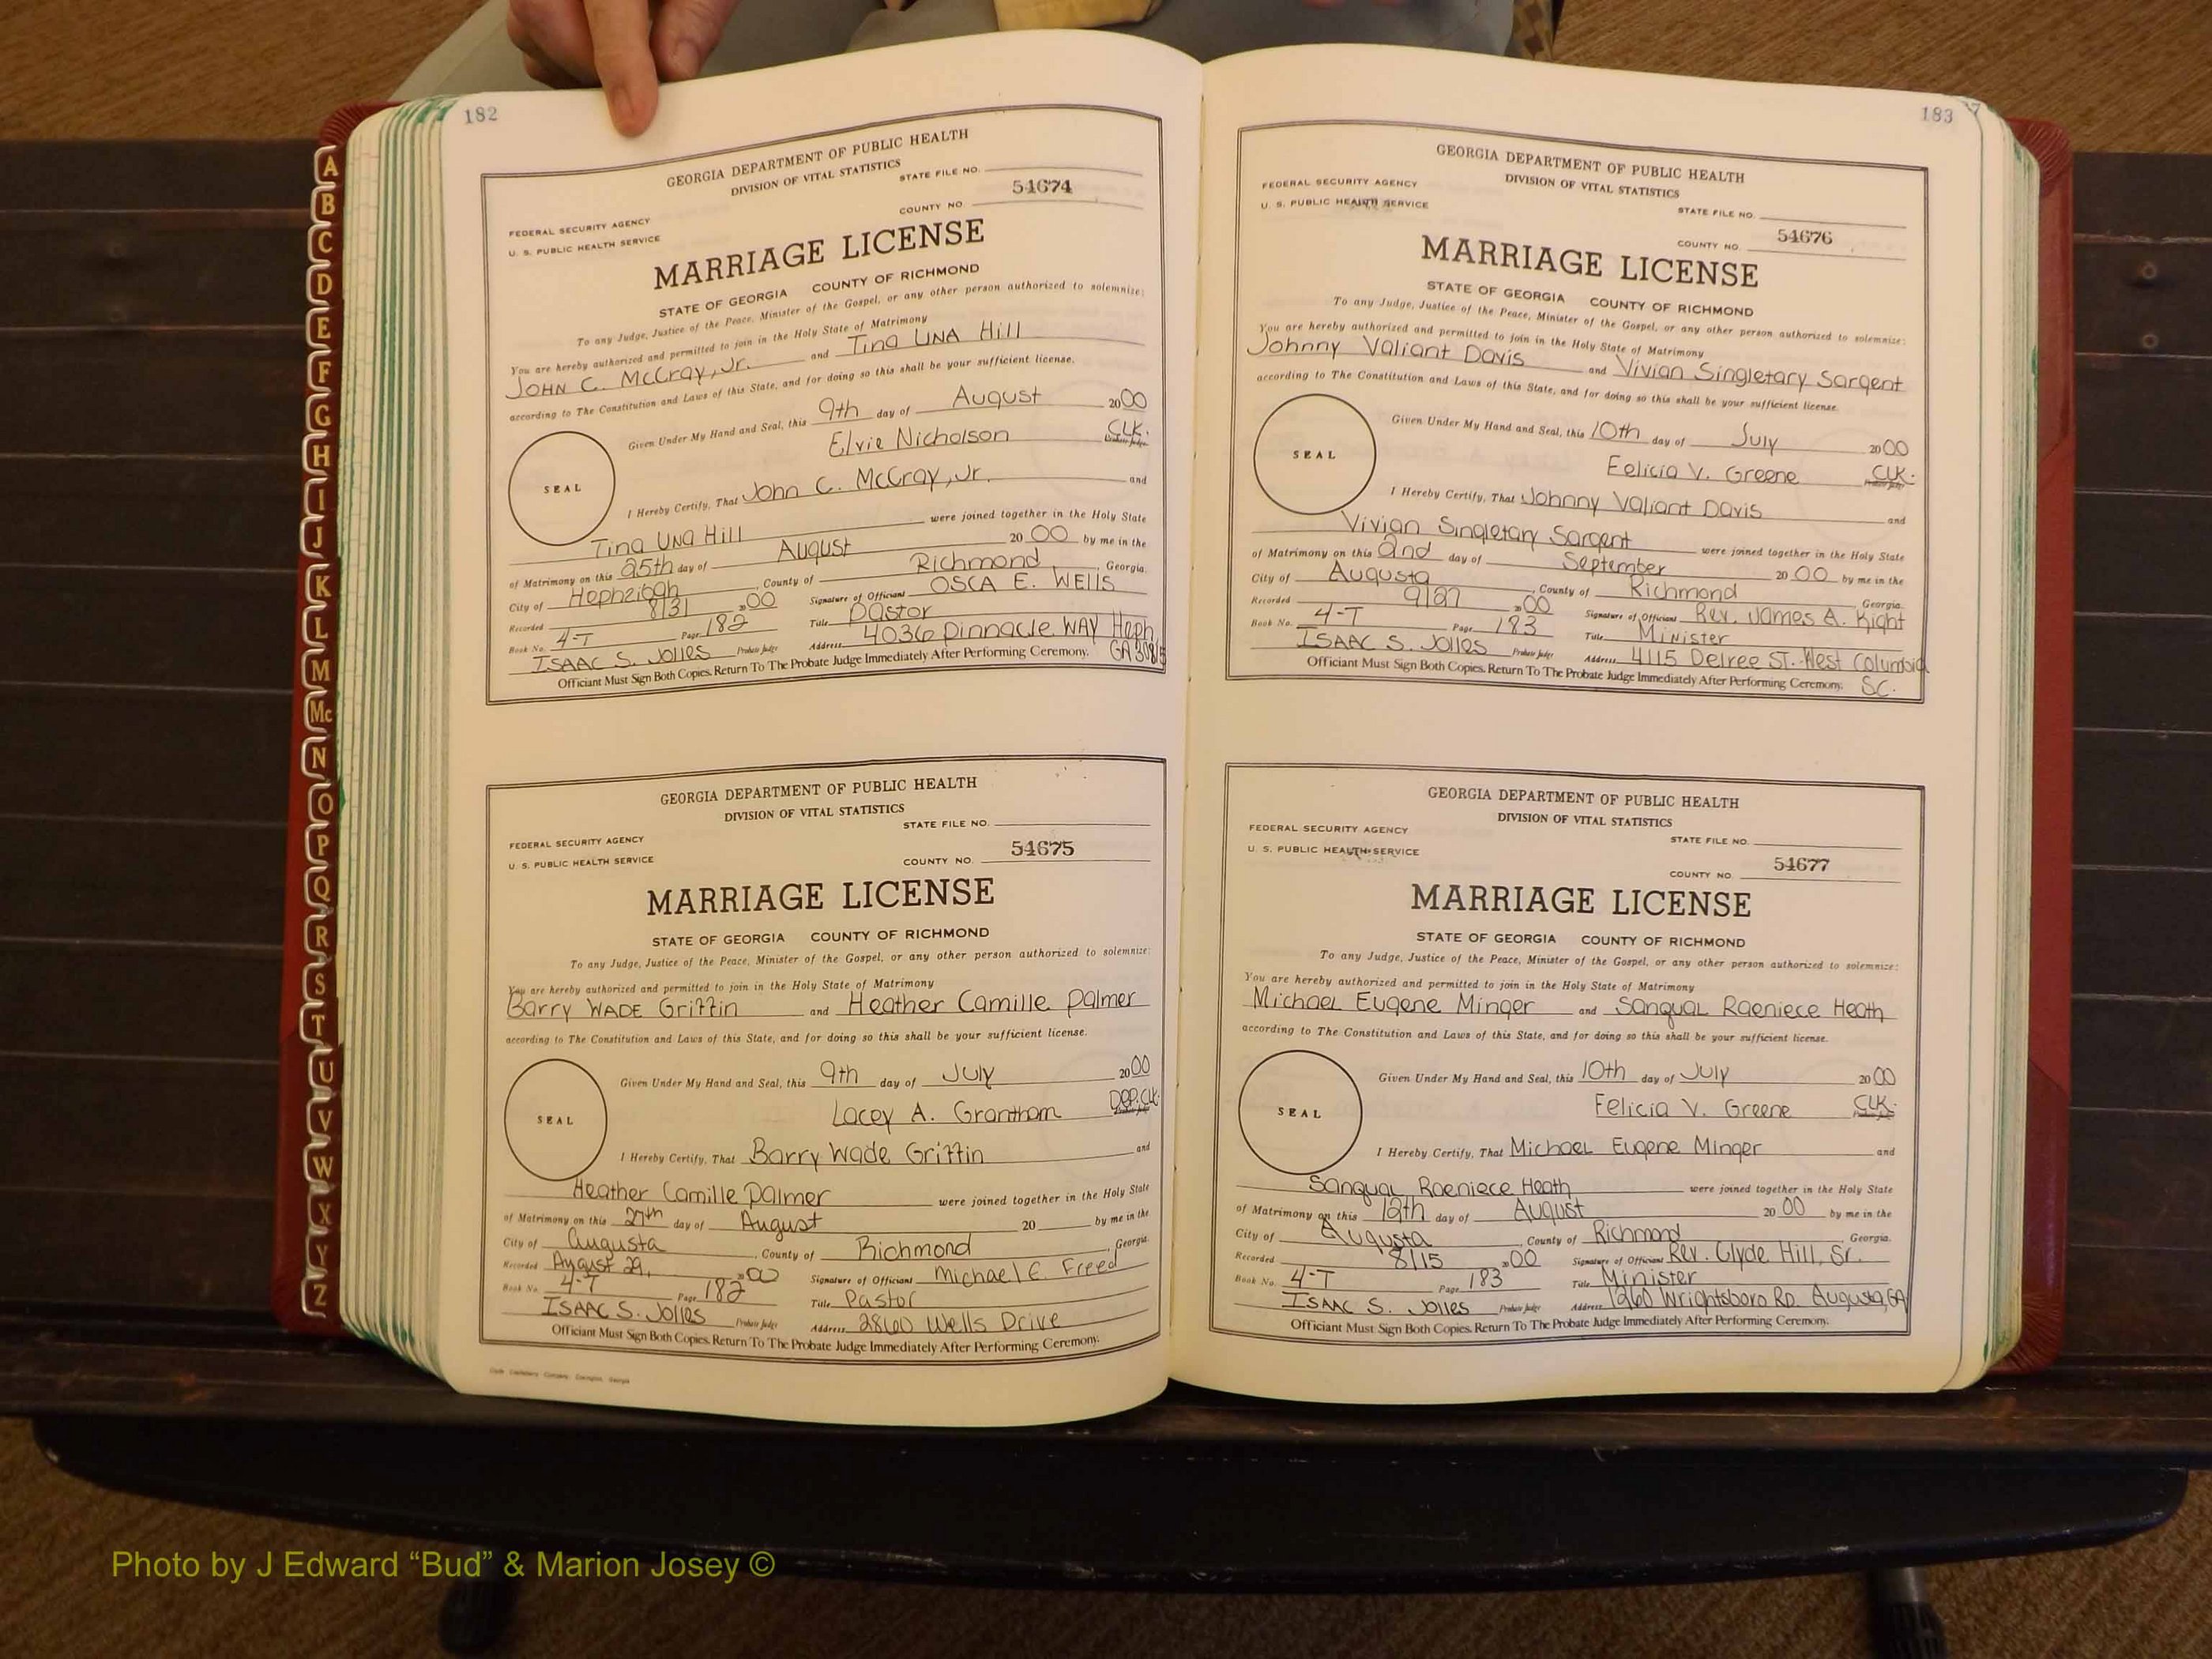 182
GEORGIA DEPARTMENT OF PUBLIC HEALTH
DIVISION OF VITAL STATISTICS
STATE FILE NO.
FEDERAL SECURITY AGENCY
U. S. PUBLIC HEALTH SERVICE
COUNTY NO. 54674
MARRIAGE LICENSE
STATE OF GEORGIA COUNTY OF RICHMOND
To any Judge, Justice of the Peace, Minister of the Gospel, or any other person authorized to solemnize:
You are hereby authorized and permitted to join in the Holy State of Matrimony
JOHN C. McCray, Jr. and Tina UNA Hill
according to The Constitution and Laws of this State, and for doing so this shall be your sufficient license.
Given Under My Hand and Seal, this 9th day of August 2000
Elvie Nicholson CLK.
Probate Judge
SEAL
I Hereby Certify, That John C. McCray, Jr. and
Tina Una Hill were joined together in the Holy State
of Matrimony on this 25th day of August 20 00 by me in the
City of Hephzibah, County of Richmond, Georgia.
Recorded 8/31 2000 Signature of Officiant OSCA E. WELLS
Book No. 4-T Page 182 Title Pastor
ISAAC S. Jolles Probate Judge Address 4036 Pinnacle WAY Heph GA 30815
Officiant Must Sign Both Copies. Return To The Probate Judge Immediately After Performing Ceremony.
GEORGIA DEPARTMENT OF PUBLIC HEALTH
DIVISION OF VITAL STATISTICS
STATE FILE NO.
FEDERAL SECURITY AGENCY
U. S. PUBLIC HEALTH SERVICE
COUNTY NO. 54675
MARRIAGE LICENSE
STATE OF GEORGIA COUNTY OF RICHMOND
To any Judge, Justice of the Peace, Minister of the Gospel, or any other person authorized to solemnize:
You are hereby authorized and permitted to join in the Holy State of Matrimony
Barry WADE Griffin and Heather Camille Palmer
according to The Constitution and Laws of this State, and for doing so this shall be your sufficient license.
Given Under My Hand and Seal, this 9th day of July 2000
Lacey A. Grantham Dep. Clk.
Probate Judge
SEAL
I Hereby Certify, That Barry Wade Griffin and
Heather Camille Palmer were joined together in the Holy State
of Matrimony on this 27th day of August 20 by me in the
City of Augusta, County of Richmond, Georgia.
Recorded August 29, 2000 Signature of Officiant Michael E. Freed
Book No. 4-T Page 182 Title Pastor
ISAAC S. Jolles Probate Judge Address 2860 Wells Drive
Officiant Must Sign Both Copies. Return To The Probate Judge Immediately After Performing Ceremony.
183
GEORGIA DEPARTMENT OF PUBLIC HEALTH
DIVISION OF VITAL STATISTICS
FEDERAL SECURITY AGENCY
U. S. PUBLIC HEALTH SERVICE
STATE FILE NO.
COUNTY NO. 54676
MARRIAGE LICENSE
STATE OF GEORGIA COUNTY OF RICHMOND
To any Judge, Justice of the Peace, Minister of the Gospel, or any other person authorized to solemnize:
You are hereby authorized and permitted to join in the Holy State of Matrimony
Johnny Valiant Davis and Vivian Singletary Sargent
according to The Constitution and Laws of this State, and for doing so this shall be your sufficient license.
Given Under My Hand and Seal, this 10th day of July 2000
Felicia V. Greene CLK.
Probate Judge
SEAL
I Hereby Certify, That Johnny Valiant Davis and
Vivian Singletary Sargent were joined together in the Holy State
of Matrimony on this 2nd day of September 20 00 by me in the
City of Augusta, County of Richmond, Georgia.
Recorded 9/27 2000 Signature of Officiant Rev. James A. Kight
Book No. 4-T Page 183 Title Minister
ISAAC S. Jolles Probate Judge Address 4115 Delree ST. West Columbia SC.
Officiant Must Sign Both Copies. Return To The Probate Judge Immediately After Performing Ceremony.
GEORGIA DEPARTMENT OF PUBLIC HEALTH
DIVISION OF VITAL STATISTICS
FEDERAL SECURITY AGENCY
U. S. PUBLIC HEALTH SERVICE
STATE FILE NO.
COUNTY NO. 54677
MARRIAGE LICENSE
STATE OF GEORGIA COUNTY OF RICHMOND
To any Judge, Justice of the Peace, Minister of the Gospel, or any other person authorized to solemnize:
You are hereby authorized and permitted to join in the Holy State of Matrimony
Michael Eugene Minger and Sanqual Raeniece Heath
according to The Constitution and Laws of this State, and for doing so this shall be your sufficient license.
Given Under My Hand and Seal, this 10th day of July 2000
Felicia V. Greene CLK.
Probate Judge
SEAL
I Hereby Certify, That Michael Eugene Minger and
Sanqual Raeniece Heath were joined together in the Holy State
of Matrimony on this 12th day of August 20 00 by me in the
City of Augusta, County of Richmond, Georgia.
Recorded 8/15 2000 Signature of Officiant Rev. Clyde Hill, Sr.
Book No. 4-T Page 183 Title Minister
ISAAC S. Jolles Probate Judge Address 1260 Wrightsboro RD. Augusta, GA
Officiant Must Sign Both Copies. Return To The Probate Judge Immediately After Performing Ceremony.
A
B
C
D
E
F
G
H
I
J
K
L
M
Mc
N
O
P
Q
R
S
T
U
V
W
X
Y
Z
Photo by J Edward “Bud” & Marion Josey ©